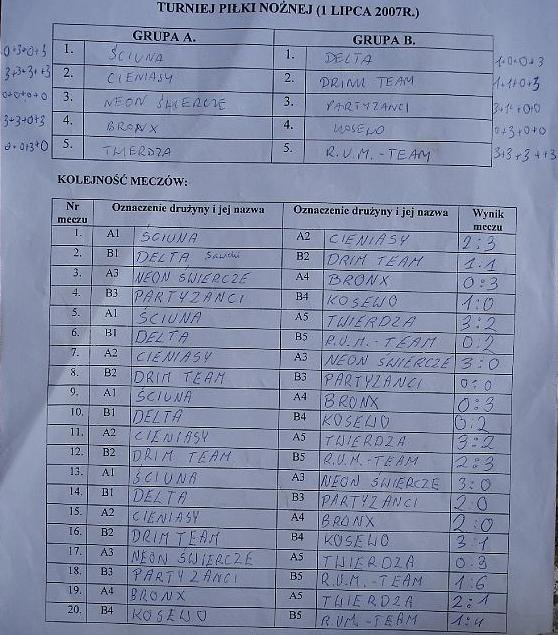 TURNIEJ PIŁKI NOŻNEJ (1 LIPCA 2007R.)
GRUPA A. GRUPA B.
0+3+0+3 1. ŚCIUNA 1. DELTA 1+0+0+3
3+3+3+3 2. CIENIASY 2. DRIM TEAM 1+1+0+3
0+0+0+0 3. NEON ŚWIERCZE 3. PARTYZANCI 3+1+0+0
3+3+0+3 4. BRONX 4. KOSEWO 0+3+0+0
0+0+3+0 5. TWIERDZA 5. R.U.M.-TEAM 3+3+3++3
KOLEJNOŚĆ MECZÓW:
Nr meczu Oznaczenie drużyny i jej nazwa Oznaczenie drużyny i jej nazwa Wynik meczu
1. A1 ŚCIUNA A2 CIENIASY 2:3
2. B1 DELTA B2 DRIM TEAM 1:1
3. A3 NEON ŚWIERCZE A4 BRONX 0:3
4. B3 PARTYZANCI B4 KOSEWO 1:0
5. A1 ŚCIUNA A5 TWIERDZA 3:2
6. B1 DELTA B5 R.U.M.-TEAM 0:2
7. A2 CIENIASY A3 NEON ŚWIERCZE 3:0
8. B2 DRIM TEAM B3 PARTYZANCI 0:0
9. A1 ŚCIUNA A4 BRONX 0:3
10. B1 DELTA B4 KOSEWO 0:2
11. A2 CIENIASY A5 TWIERDZA 3:2
12. B2 DRIM TEAM B5 R.U.M.-TEAM 2:3
13. A1 ŚCIUNA A3 NEON ŚWIERCZE 3:0
14. B1 DELTA B3 PARTYZANCI 2:0
15. A2 CIENIASY A4 BRONX 2:0
16. B2 DRIM TEAM B4 KOSEWO 3:1
17. A3 NEON ŚWIERCZE A5 TWIERDZA 0:3
18. B3 PARTYZANCI B5 R.U.M.-TEAM 1:6
19. A4 BRONX A5 TWIERDZA 2:1
20. B4 KOSEWO B5 R.U.M-TEAM 1:4